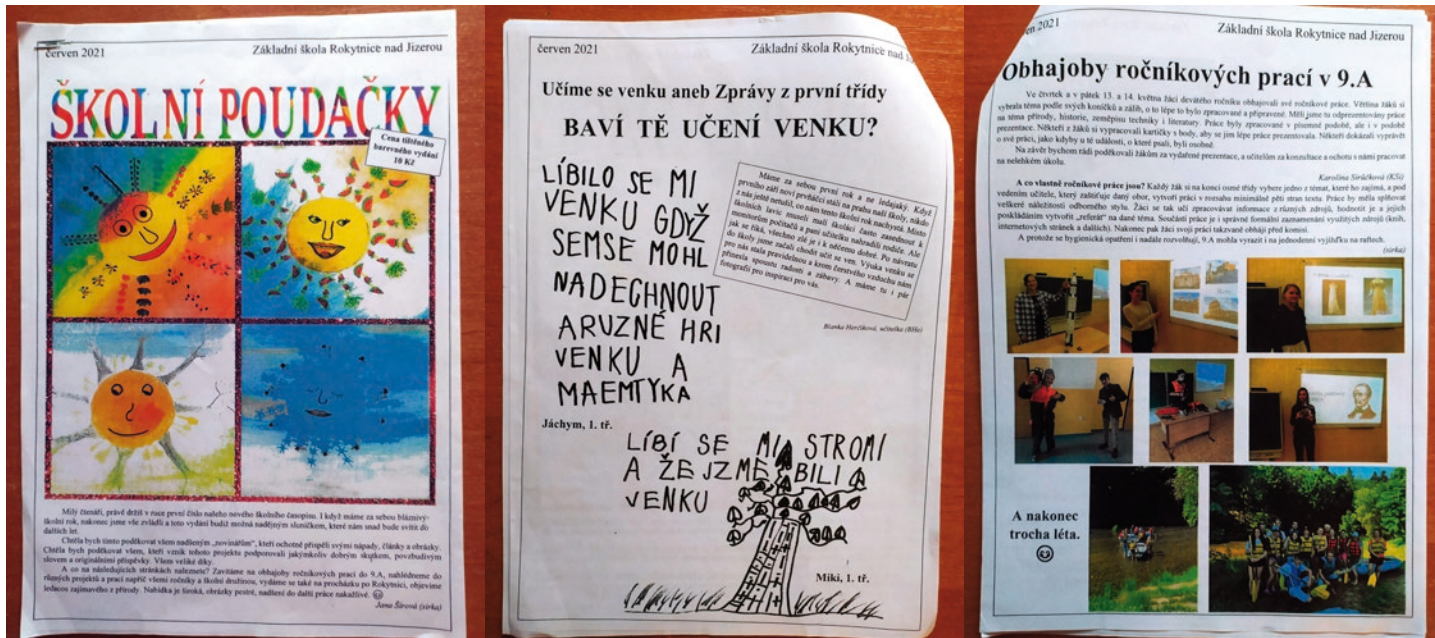 červen 2021
Základní škola Rokytnice nad Jizerou
ŠKOLNÍ POUDAČKY
Cena tištěného
barevného vydání
10 Kč
Milý čtenáři, právě držíš v ruce první číslo našeho nového školního časopisu. I když máme za sebou bláznivý
školní rok, nakonec jsme vše zvládli a toto vydání budiž možná nadějným sluníčkem, které nám snad bude svítit do
dalších let.
Chtěla bych tímto poděkovat všem nadšeným „novinářům“, kteří ochotně přispěli svými nápady, články a obrázky.
Chtěla bych poděkovat všem, kteří vznik tohoto projektu podporovali jakýmkoliv dobrým skutkem, povzbudivým
slovem a originálními příspěvky. Všem veliké díky.
A co na následujících stránkách naleznete? Zavítáme na obhajoby ročníkových prací do 9.A, nahlédneme do
různých projektů a prací napříč všemi ročníky a školní družinou, vydáme se také na procházku po Rokytnici, objevíme
ledacos zajímavého z přírody. Nabídka je široká, obrázky pestré, nadšení do další práce nakažlivé.
Jana Šírová (sirka)
červen 2021
Základní škola Rokytnice nad
Učíme se venku aneb Zprávy z první třídy
BAVÍ TĚ UČENÍ VENKU?
LÍBILO SE MI
VENKU GDYŽ
SEMSE MOHL
NADECHNOUT
ARUZNÉ HRI
VENKU A
MAEMTYKA
Jáchym, 1. tř.
Máme za sebou první rok a ne ledajaký. Když
prvního září noví prvňáčci stáli na prahu naší školy, nikdo
z nás ještě netušil, co nám tento školní rok nachystá. Místo
školních lavic museli naši školáci často zasednout k
monitorům počítačů a paní učitelku nahradili rodiče. Ale
jak se říká, všechno zlé je i k něčemu dobré. Po návratu
do školy jsme začali chodit učit se ven. Výuka venku se
pro nás stala pravidelnou a krom čerstvého vzduchu nám
přinesla spoustu radosti a zábavy. A máme tu i pár
fotografií pro inspiraci pro vás.
Blanka Herčíková, učitelka (BHe)
LÍBÍ SE MI STROMI
A ŽE JZME BILI
VENKU
Miki, 1. tř.
en 2021
Základní škola Rokytnice nad Jizerou
Obhajoby ročníkových prací v 9.A
Ve čtvrtek a v pátek 13. a 14. května žáci devátého ročníku obhajovali své ročníkové práce. Většina žáků si
vybrala téma podle svých koníčků a zálib, o to lépe to bylo zpracované a připravené. Měli jsme tu odprezentovány práce
na téma přírody, historie, zeměpisu techniky i literatury. Práce byly zpracované v písemné podobě, ale i v podobě
prezentace. Někteří z žáků si vypracovali kartičky s body, aby se jim lépe práce prezentovala. Někteří dokázali vyprávět
o své práci, jako kdyby u té události, o které psali, byli osobně.
Na závěr bychom rádi poděkovali žákům za vydařené prezentace, a učitelům za konzultace a ochotu s námi pracovat
na nelehkém úkolu.
Karolína Sirůčková (KSi)
A co vlastně ročníkové práce jsou? Každý žák si na konci osmé třídy vybere jedno z témat, které ho zajímá, a pod
vedením učitele, který zaštiťuje daný obor, vytvoří práci v rozsahu minimálně pěti stran textu. Práce by měla splňovat
veškeré náležitosti odborného stylu. Žáci se tak učí zpracovávat informace z různých zdrojů, hodnotit je a jejich
poskládáním vytvořit „referát“ na dané téma. Součástí práce je i správné formální zaznamenání využitých zdrojů (knih,
internetových stránek a dalších). Nakonec pak žáci svoji práci takzvaně obhájí před komisí.
A protože se hygienická opatření i nadále rozvolňují, 9.A mohla vyrazit i na jednodenní vyjížďku na raftech.
(sirka)
A nakonec
trocha léta.